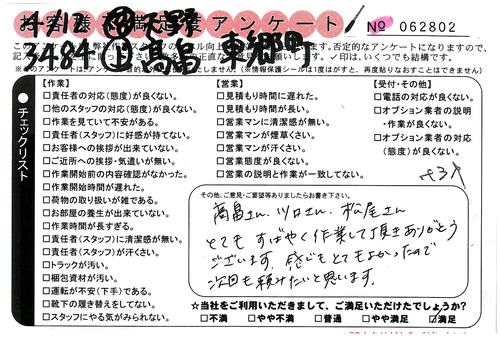 お客様満足度アンケート
4/12 天野
№ 062802
3484 高畠 東郷町
※このアンケートは
(※情報保護シールは1度はがすと、再度貼りなおすことはできません)
チェックリスト
【作業】
□責任者の対応(態度)が良くない。
□他のスタッフの対応(態度)が良くない。
□作業を見ていて不安がある。
□責任者(スタッフ)に好感が持てない。
□お客様への挨拶が出来ていない。
□ご近所への挨拶・気遣いが無い。
□作業開始前の内容確認がなかった。
□作業開始時間が遅れた。
□荷物の取り扱いが雑である。
□お部屋の養生が出来ていない。
□作業時間が長すぎる。
□責任者(スタッフ)に清潔感が無い。
□責任者(スタッフ)が汗くさい。
□トラックが汚い。
□梱包資材が汚い。
□運転が不安(下手)である。
□靴下の履き替えをしてない。
□スタッフにやる気がみられない。
【営業】
□見積もり時間に遅れた。
□見積もり時間が長い。
□営業マンに清潔感が無い。
□営業マンが煙草くさい。
□営業マンが汗くさい。
□営業態度が良くない。
□営業の説明と作業が一致してない。
【受付・その他】
□電話の対応が良くない。
□オプション業者の説明
・作業が良くない。
□オプション業者の対応
(態度)が良くない。
その他、ご意見・ご要望等ありましたらお書き下さい。
高畠さん、川口さん、松尾さん
とてもすばやく作業して頂きありがとう
ございます。感じもとてもよかったので
次回も頼みたいと思います。
☆当社をご利用いただきまして、ご満足いただけたでしょうか?
□不満 □やや不満 □普通 □やや満足 ☑満足